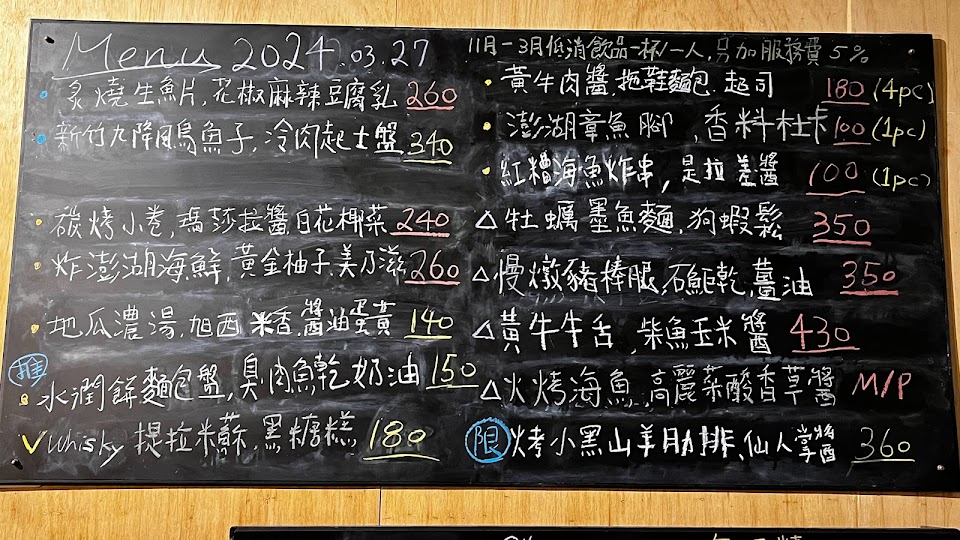 Menu 2024.03.27
炙燒生魚片,花椒麻辣豆腐乳 260
新竹九降風烏魚子,冷肉起士盤 340
碳烤小卷,瑪莎拉醬白花椰菜 240
炸澎湖海鮮,黃金柚子美乃滋 260
地瓜濃湯,旭西米香,醬油蛋黃 140
推
水潤餅麵包盤,臭肉魚乾奶油 150
Whisky 提拉米蘇,黑糖糕 180
11月-3月低消飲品一杯/一人,另加服務費5%
黃牛肉醬,拖鞋麵包,起司 180 (4pc)
澎湖章魚腳,香料杜卡 100 (1pc)
紅糟海魚炸串,是拉差醬 100 (1pc)
△牡蠣墨魚麵,狗蝦鬆 350
△慢燉豬棒腿,石鮔乾,薑油 350
△黃牛牛舌,柴魚玉米醬 430
△火烤海魚,高麗菜酸香草醬 M/P
限 烤小黑山羊肋排、仙人掌醬 360